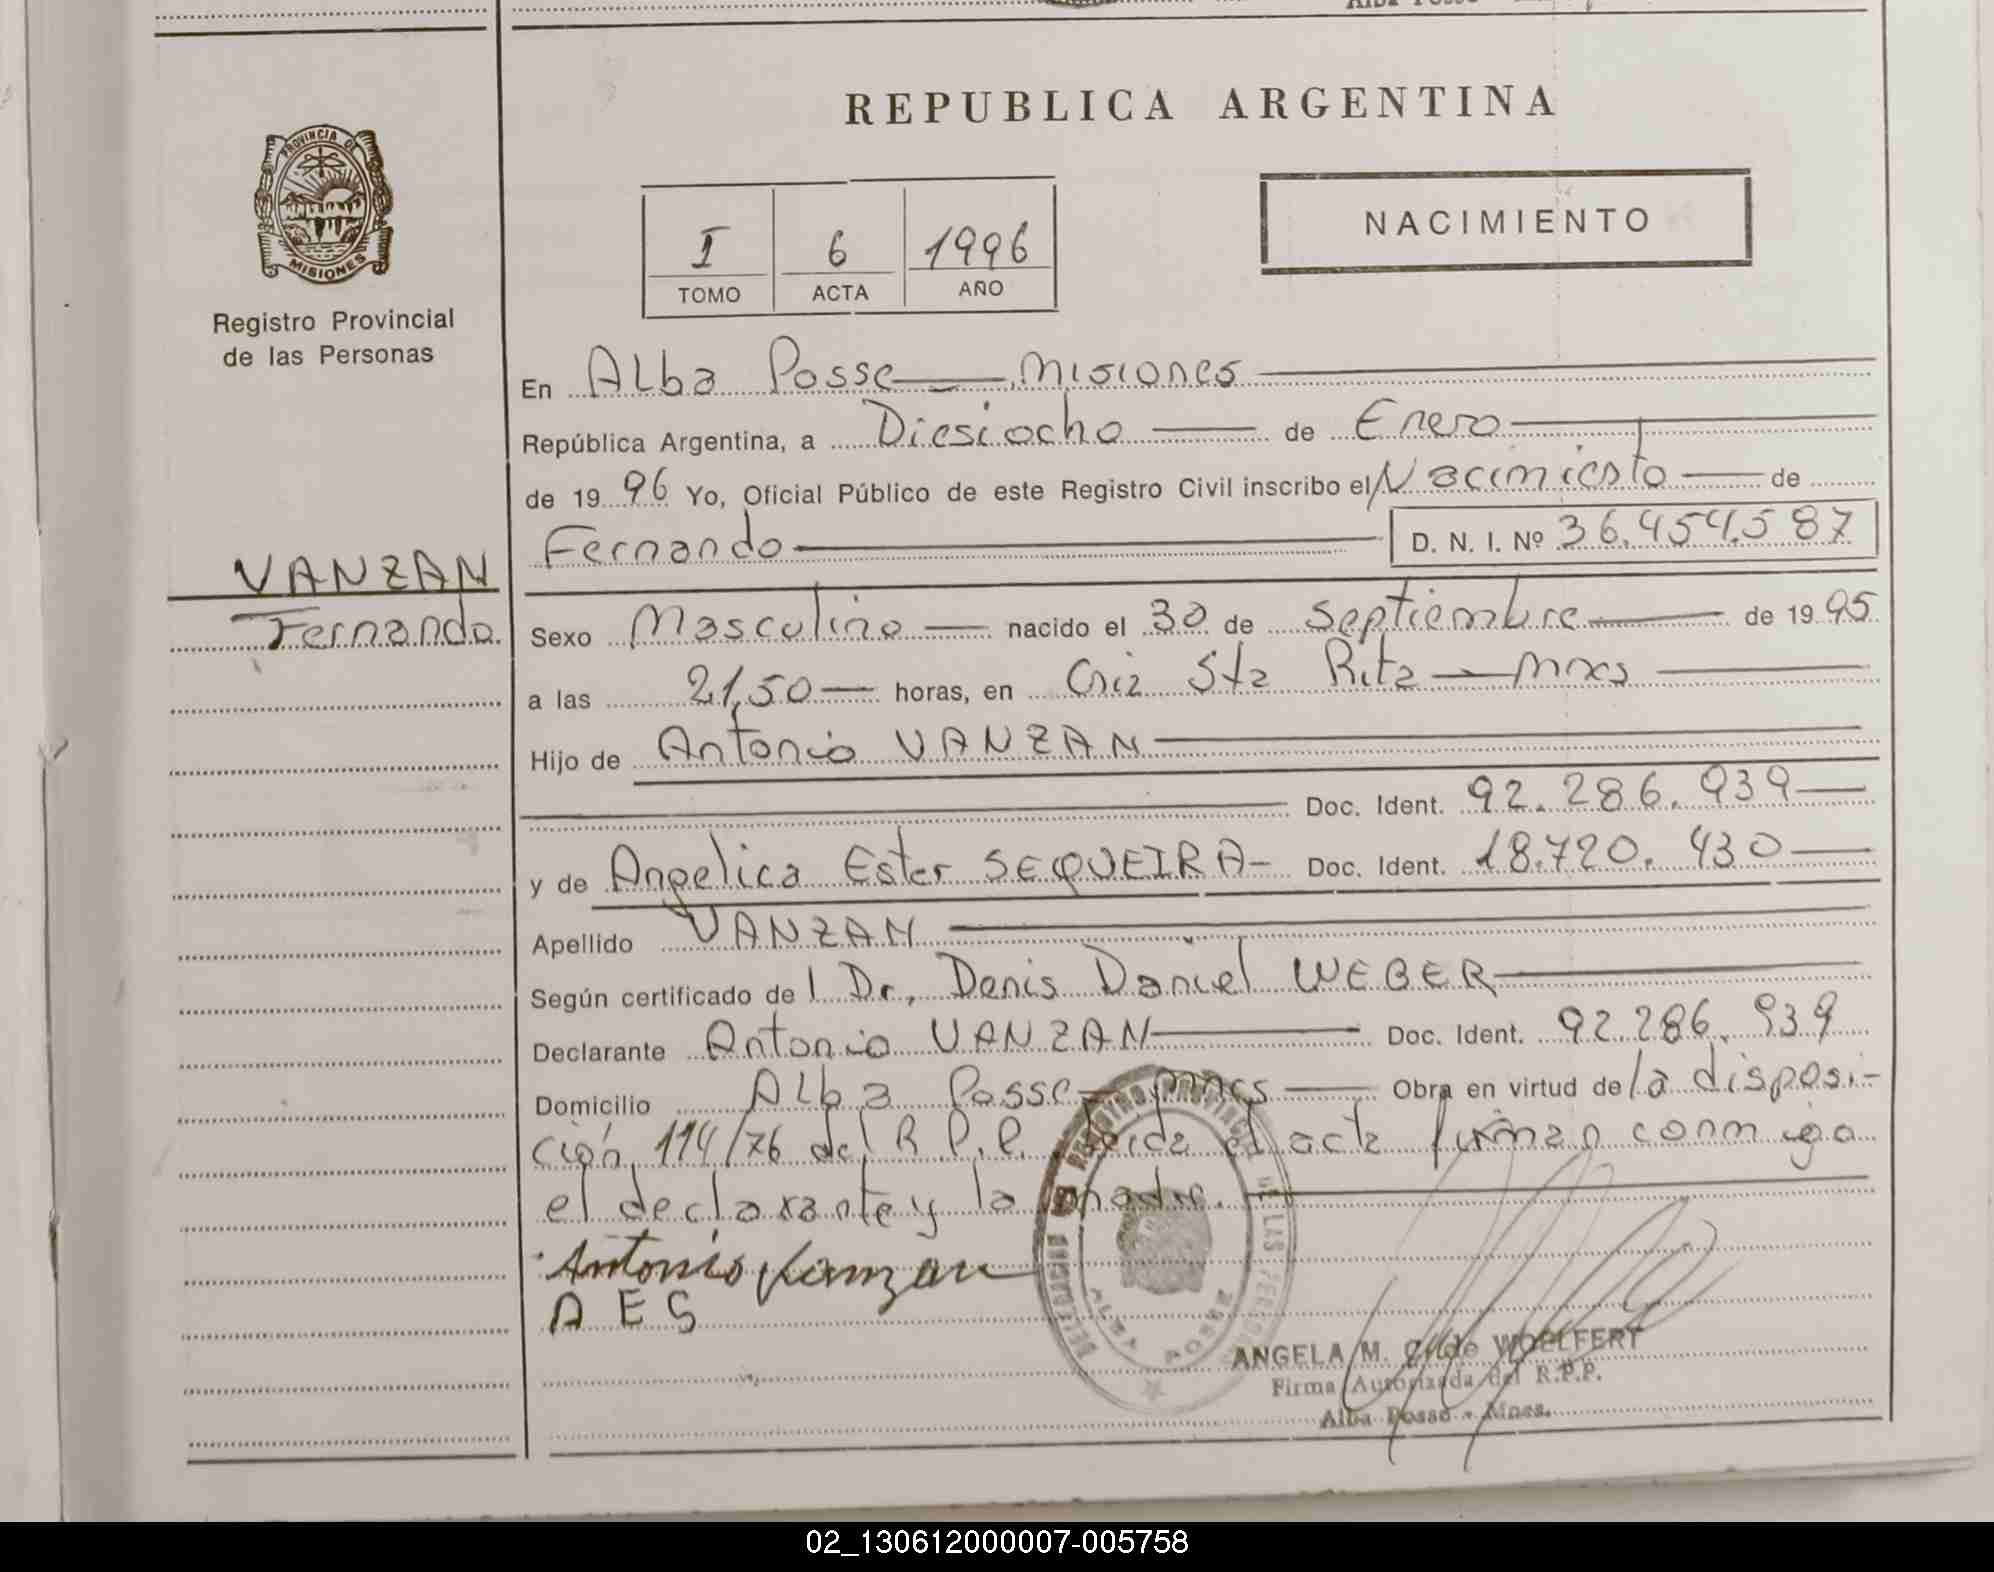 REPUBLICA ARGENTINA
PROVINCIA DE
MISIONES
Registro Provincial
de las Personas
I 6 1996
TOMO ACTA AÑO
NACIMIENTO
En Alba Posse — Misiones
República Argentina, a Diesiocho de Enero
de 19 96 Yo, Oficial Público de este Registro Civil inscribo el Nacimiento de
Fernando D. N. I. Nº 36.454.587
VANZAN
Fernando
Sexo Masculino nacido el 30 de Septiembre de 19 95
a las 21,50 horas, en Sta Rita — Mnes
Hijo de Antonio VANZAN
Doc. Ident. 92.286.939
y de Angelica Ester SEQUEIRA Doc. Ident. 18.720.430
Apellido VANZAN
Según certificado del Dr. Denis Daniel WEBER
Declarante Antonio VANZAN Doc. Ident. 92.286.939
Domicilio Alba Posse — Mnes Obra en virtud de la disposi-
ción 114/76 del R.P.P. Leida el acta firman conmigo
el declarante y la madre.
Antonio Vanzan
A E S
ANGELA M. WOELFERT
Firma Autorizada del R.P.P.
Alba Posse - Mnes.
02_130612000007-005758